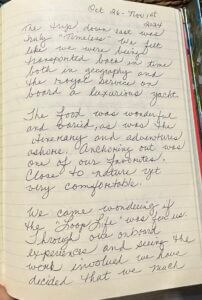 Oct 26 - Nov 1st
2024
The trip down east was
truly "Timeless". We felt
like we were being
transported back in time
both in geography and
the royal service on
board a luxurious yacht.
The food was wonderful
and varied, as was the
itinerary and adventures
ashore. Anchoring out was
one of our favorites.
Close to nature yet
very comfortable.
We came wondering if
the "Loop Life" was for us.
Through our onboard
experiences and seeing the
work involved we have
decided that we much